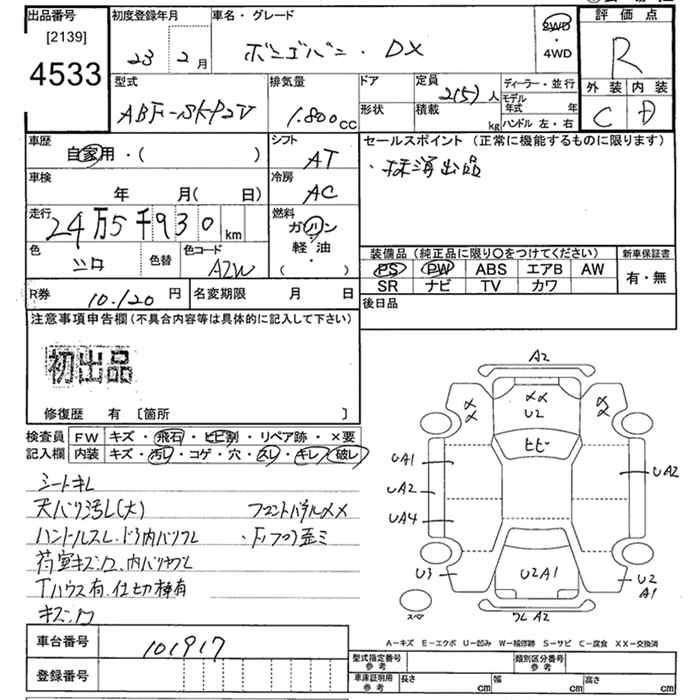 出品番号
[2139]
4533
初度登録年月
23 2月
車名・グレード
ボンゴバン・DX
2WD
・
4WD
評価点
R
外装 内装
C D
型式
ABF-SKP2V
排気量
1.800cc
ドア
形状
定員
2(5)人
積載
kg
ディーラー・並行
モデル年式 年
ハンドル 左・右
車歴
自家用・( )
シフト
AT
セールスポイント(正常に機能するものに限ります)
・抹消出品
車検
年 月( 日)
冷房
AC
走行
24万5千930km
燃料
ガソリン
軽油
( )
色
シロ
色替
色コード
A2W
装備品(純正品に限り〇をつけてください)
PS PW ABS エアB AW
SR ナビ TV カワ
新車保証書
有・無
R券
10.120円
名変期限 月 日
後日品
注意事項申告欄(不具合内容等は具体的に記入して下さい)
初出品
修復歴 有 [箇所 ]
検査員記入欄
FW キズ・飛石・ヒビ割・リペア跡・×要
内装 キズ・汚レ・コゲ・穴・スレ・キレ・破レ
シートキレ
天バリ汚レ(大)
フロントパネルXX
ハンドルスレ.ドラ内バリワレ
荷室キズ
Tハウス有.仕切棒有
A2
XX
U2
XX
XX
ヒビ
UA1
UA2
UA2
UA4
U3
U2A1
U2
A1
スペア
ワレA2
A-キズ E-エクボ U-凹み W-補修跡 S-サビ C-腐食 XX-交換済
車台番号
101917
登録番号
型式指定番号
参考
類別区分番号
参考
車庫証明用
参考
長さ cm
幅 cm
高さ cm